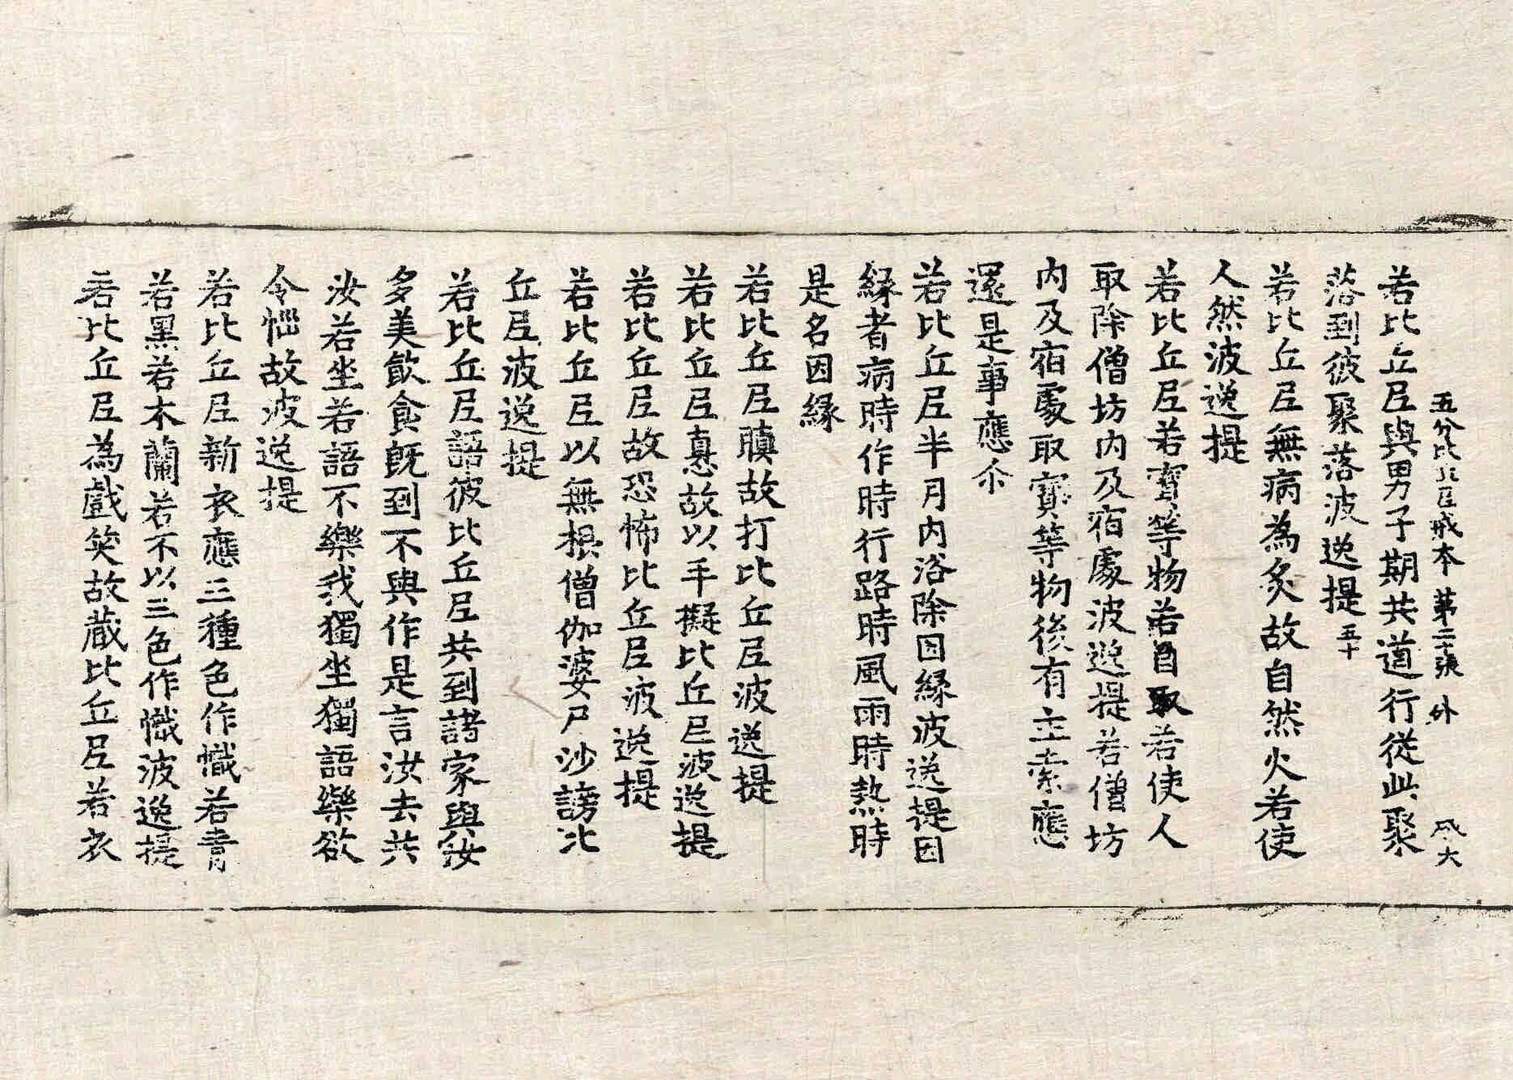 五分比丘尼戒本 第二十張 外
若比丘尼與男子期共道行從此聚
落到彼聚落波逸提五十
若比丘尼無病為炙故自然火若使
人然波逸提
若比丘尼若寶等物若自取若使人
取除僧坊内及宿處波逸提若僧坊
内及宿處取寶等物後有主索應
還是事應尒
若比丘尼半月内浴除因緣波逸提因
緣者病時作時行路時風雨時熱時
是名因緣
若比丘尼瞋故打比丘尼波逸提
若比丘尼恚故以手擬比丘尼波逸提
若比丘尼故恐怖比丘尼波逸提
若比丘尼以無根僧伽婆尸沙謗比
丘尼波逸提
若比丘尼語彼比丘尼共到諸家與汝
多美飲食既到不與作是言汝去共
汝若坐若語不樂我獨坐獨語樂欲
令惱故波逸提
若比丘尼新衣應三種色作幟若青
若黑若木蘭若不以三色作幟波逸提
若比丘尼為戲笑故藏比丘尼若衣